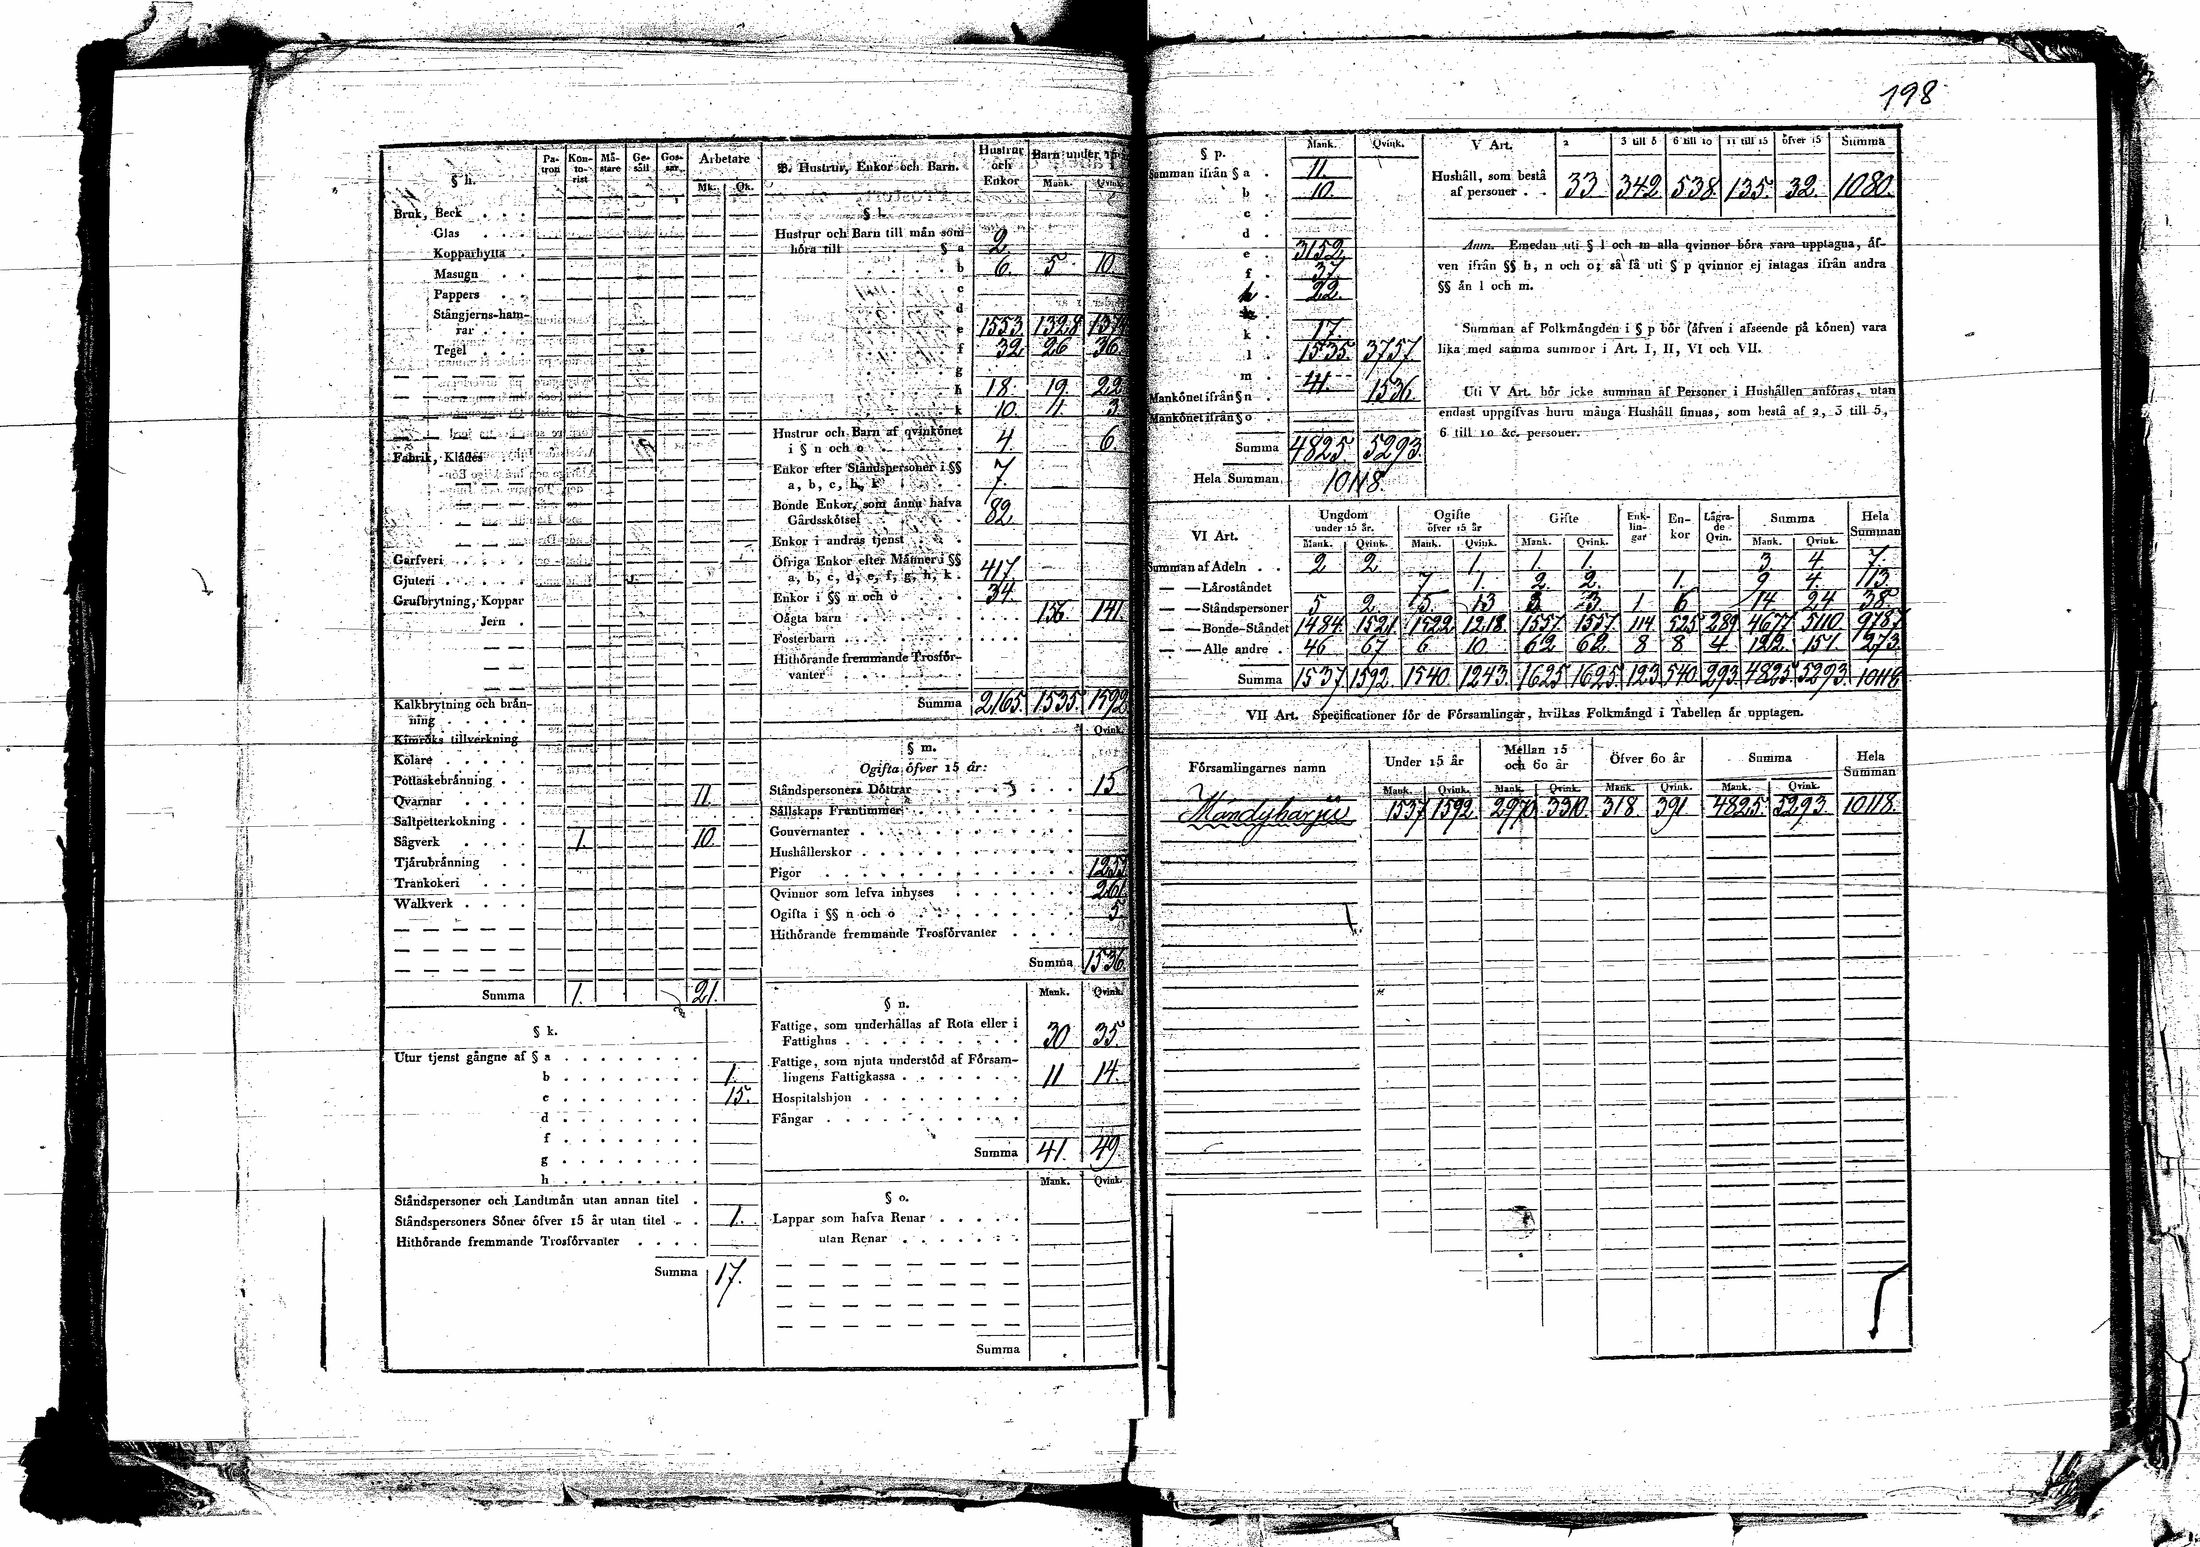 198
§ h.
Pa- tron Kon- to- rist Må- stare Ge- såll Gos- sar Arbetare
Mk. Qk.
Bruk, Beck . . .
Glas . . .
Kopparhytta .
Masugn . .
Pappers . .
Stångjerns-ham-
rar . . .
Tegel . . .
Fabrik, Klädes
Garfveri . . . .
Gjuteri . . . . .
Grufbrytning, Koppar
Jern .
Kalkbrytning och brån-
ning . . . . .
Kimröks tillverkning
Kolare . . . . .
Pottaskebrånning . .
Qvarnar . . . . 11.
Saltpetterkokning . .
Sågverk . . . . 1. 10.
Tjårubrånning . .
Trankokeri . . .
Walkverk . . . .
Summa 1. 21.
§ k.
Utur tjenst gångne af § a . . . . . . . .
b . . . . . . . . 1.
c . . . . . . . . 15.
d . . . . . . . .
f . . . . . . . .
g . . . . . . . .
h . . . . . . . .
Ståndspersoner och Landtmån utan annan titel .
Ståndspersoners Söner öfver 15 år utan titel . . 1.
Hithörande fremmande Trosförvanter . . . .
Summa 17.
B. Hustrur, Enkor och Barn. Hustrur och Enkor Barn under 15
Mank. Qvink.
§ l.
Hustrur och Barn till mån som
höra till § a 2
b 6. 5 10
c
d
e 1553 1328
f 32 26 36.
g
h 18. 19. 22
k 10. 11. 3
Hustrur och Barn af qvinkönet
i § n och o . . . . . . 4. 6.
Enkor efter Ståndspersoner i §§
a, b, c, h, k . . . . 7.
Bonde Enkor, som ånnu hafva
Gårdsskötsel . . . . . 82
Enkor i andras tjenst . . .
Öfriga Enkor efter Månner i §§
a, b, c, d, e, f, g, h, k . 417
Enkor i §§ n och o . . . 34.
Oågta barn . . . . . . 136. 141.
Fosterbarn . . . . . .
Hithörande fremmande Trosför-
vanter . . . . . .
Summa 2165. 1535. 1592
Qvink.
§ m.
Ogifta öfver 15 år:
Ståndspersoners Döttrar . . . . . . . 15.
Sållskaps Fruntimmer . . . . . . .
Gouvernanter . . . . . . . . . .
Hushållerskor . . . . . . . . . .
Pigor . . . . . . . . . . . 1255
Qvinnor som lefva inhyses . . . . . . 261
Ogifta i §§ n och o . . . . . . . . 5.
Hithörande fremmande Trosförvanter . . . .
Summa 1536.
§ n. Mank. Qvink.
Fattige, som underhållas af Rota eller i
Fattighus . . . . . . . . . 30 35.
Fattige, som njuta understöd af Församlingens Fattigkassa . . . . . . . 11 14.
Hospitalshjon . . . . . . . . .
Fångar . . . . . . . . . . .
Summa 41. 49
§ o. Mank. Qvink.
Lappar som hafva Renar . . . . .
utan Renar . . . . . .
Summa
§ p. Mank. Qvink.
Summan ifrån § a . 11.
b . 10.
c .
d .
e . 3152
f . 37
h . 22.
k . 17.
l . 1535. 3757
m . 1536.
Mankönet ifrån § n . 41.
Mankönet ifrån § o .
Summa 4825. 5293.
Hela Summan 10118.
V Art. 2 3 till 5 6 till 10 11 till 15 öfver 15 Summa
Hushåll, som bestå
af personer . . 33 342 538 135. 32. 1080.
Anm. Emedan uti § l och m alla qvinnor böra vara upptagna, åf-
ven ifrån §§ h, n och o; så få uti § p qvinnor ej intagas ifrån andra
§§ ån l och m.
Summan af Folkmångden i § p bör (åfven i afseende på könen) vara
lika med samma summor i Art. I, II, VI och VII.
Uti V Art. bör icke summan af Personer i Hushållen anföras, utan
endast uppgifvas huru många Hushåll finnas, som bestå af 2, 3 till 5,
6 till 10 &c. personer.
VI Art. Ungdom under 15 år. Ogifte öfver 15 år Gifte Enk- lin- gar En- kor Lågra- de Qvin. Summa Hela Summan
Mank. Qvink. Mank. Qvink. Mank. Qvink. Mank. Qvink.
Summan af Adeln . . 2 2 1 1. 1. 3 4. 7.
— — Låroståndet 7 1. 2 2. 1. 9 4. 13.
— — Ståndspersoner 5 2 5. 13 3 3. 1 6 14 24 38.
— — Bonde-Ståndet 1484. 1521. 1522 1218. 1557. 1557. 114 525 289 4677 5110. 9787
— — Alle andre . 46 67 6 10 62 62. 8 8 4 122. 151. 273.
Summa 1537 1592. 1540. 1243. 1625 1625. 123 540. 293. 4825 5293. 10118
VII Art. Specificationer för de Församlingar, hvilkas Folkmångd i Tabellen år upptagen.
Församlingarnes namn Under 15 år Mellan 15 och 60 år Öfver 60 år Summa Hela Summan
Mank. Qvink. Mank. Qvink. Mank. Qvink. Mank. Qvink.
Mändyharju 1537 1592. 2970 3310. 318. 391 4825. 5293. 10118.